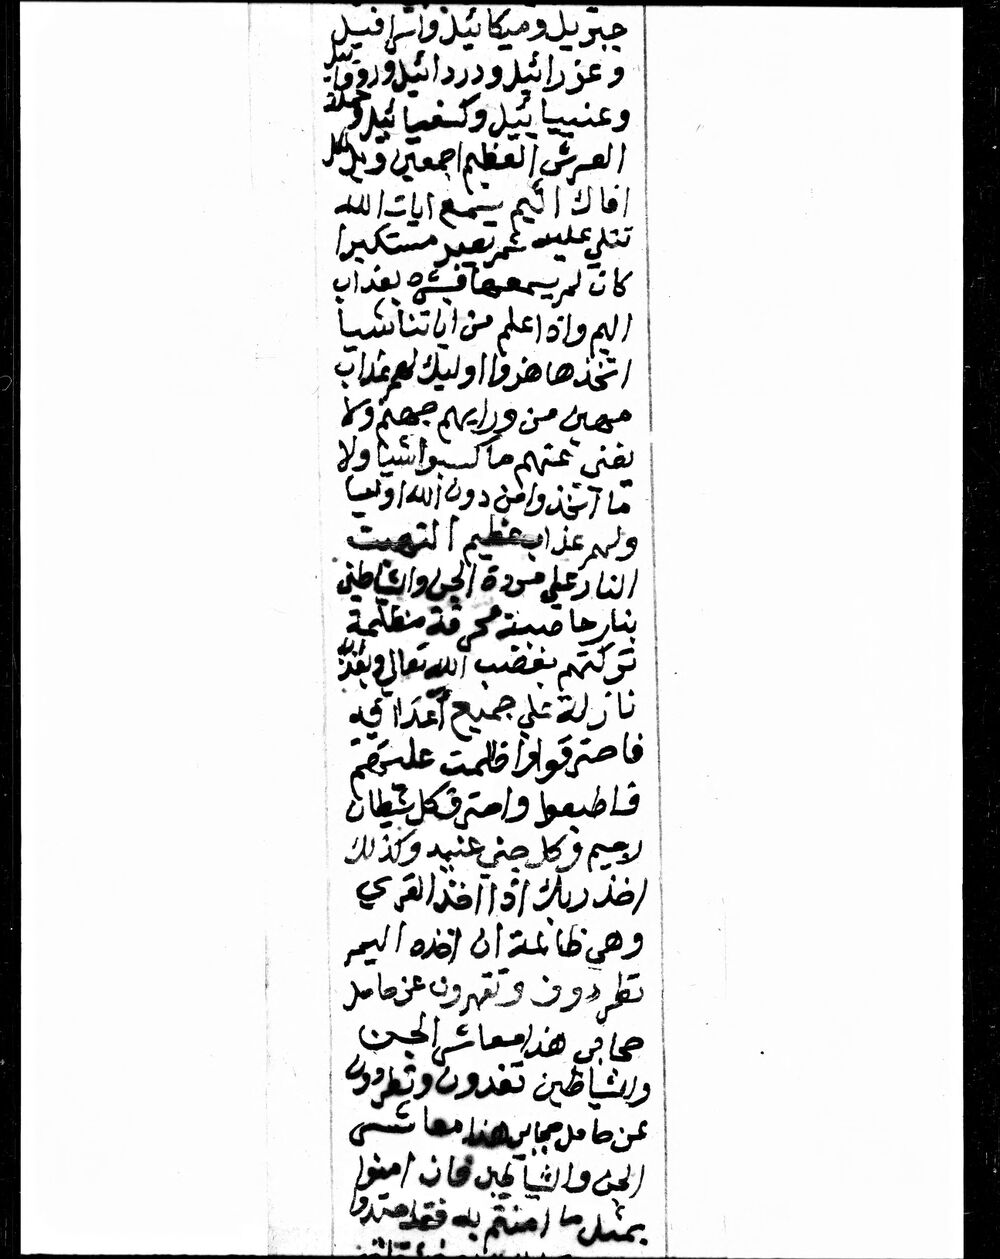 جبريل وميكائيل واسرافيل
وعزرائيل ودردائيل ورووائيل
وعنييائيل وكسفيائيل وحملة
العرش العظيم اجمعين ويل لكل
افاك اثيم يسمع ايات الله
تتلي عليه ثم يصر مستكبرا
كان لم يسمعها فبشره بعذاب
اليم واذا علم من اياتنا شيا
اتخذها هزوا اوليك لهم عذاب
مهين من ورايهم جهنم ولا
يغني عنهم ما كسبوا شيا ولا
ما اتخذوا من دون الله اوليا
ولهم عذاب عظيم التهبت
النار علي مردة الجن والشياطين
بنار حاميية محرقة منظليمة
تركتهم بغضب الله تعالي وبعذاب
نازلة علي جميع اعدائيه
فاحترقوا واظلمت عليهم
فاطبعوا واحترق كل شيطان
رجيم وكل جني عنيد وكذلك
اخذ ربك اذا اخذ القري
وهي ظالمة ان اخذه اليم
تطردون وتقهرون عن حامل
حجابي هذا معاشر الجن
والشياطين تبعدون وتطردون
عن حامل حجابي هذا معاشر
الجن والشياطين فان امنوا
بمثل ما امنتم به فقد اهتدوا